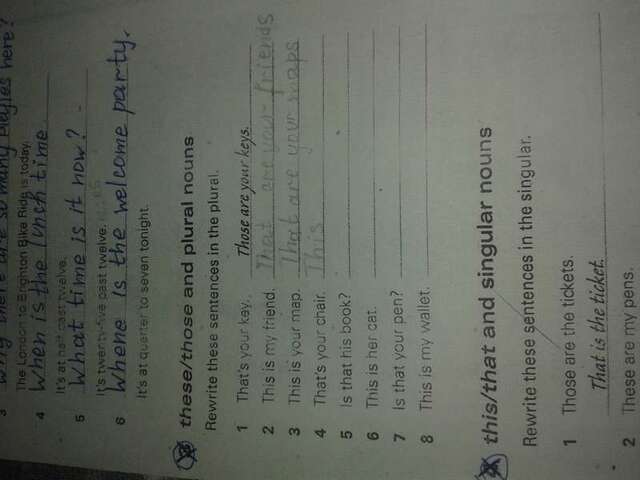 The London to Brighton Bike Ride is today.
4 When is the lunsh time
It's at half past twelve.
5 What time is it now?
It's twenty-five past twelve.
6 Where is the welcome party.
It's at quarter to seven tonight.
these/those and plural nouns
Rewrite these sentences in the plural.
1 That's your key. Those are your keys.
2 This is my friend. That are your friends
3 This is your map. That are your maps
4 That's your chair. This
5 Is that his book?
6 This is her cat.
7 Is that your pen?
8 This is my wallet.
this/that and singular nouns
Rewrite these sentences in the singular.
1 Those are the tickets.
That is the ticket.
2 These are my pens.